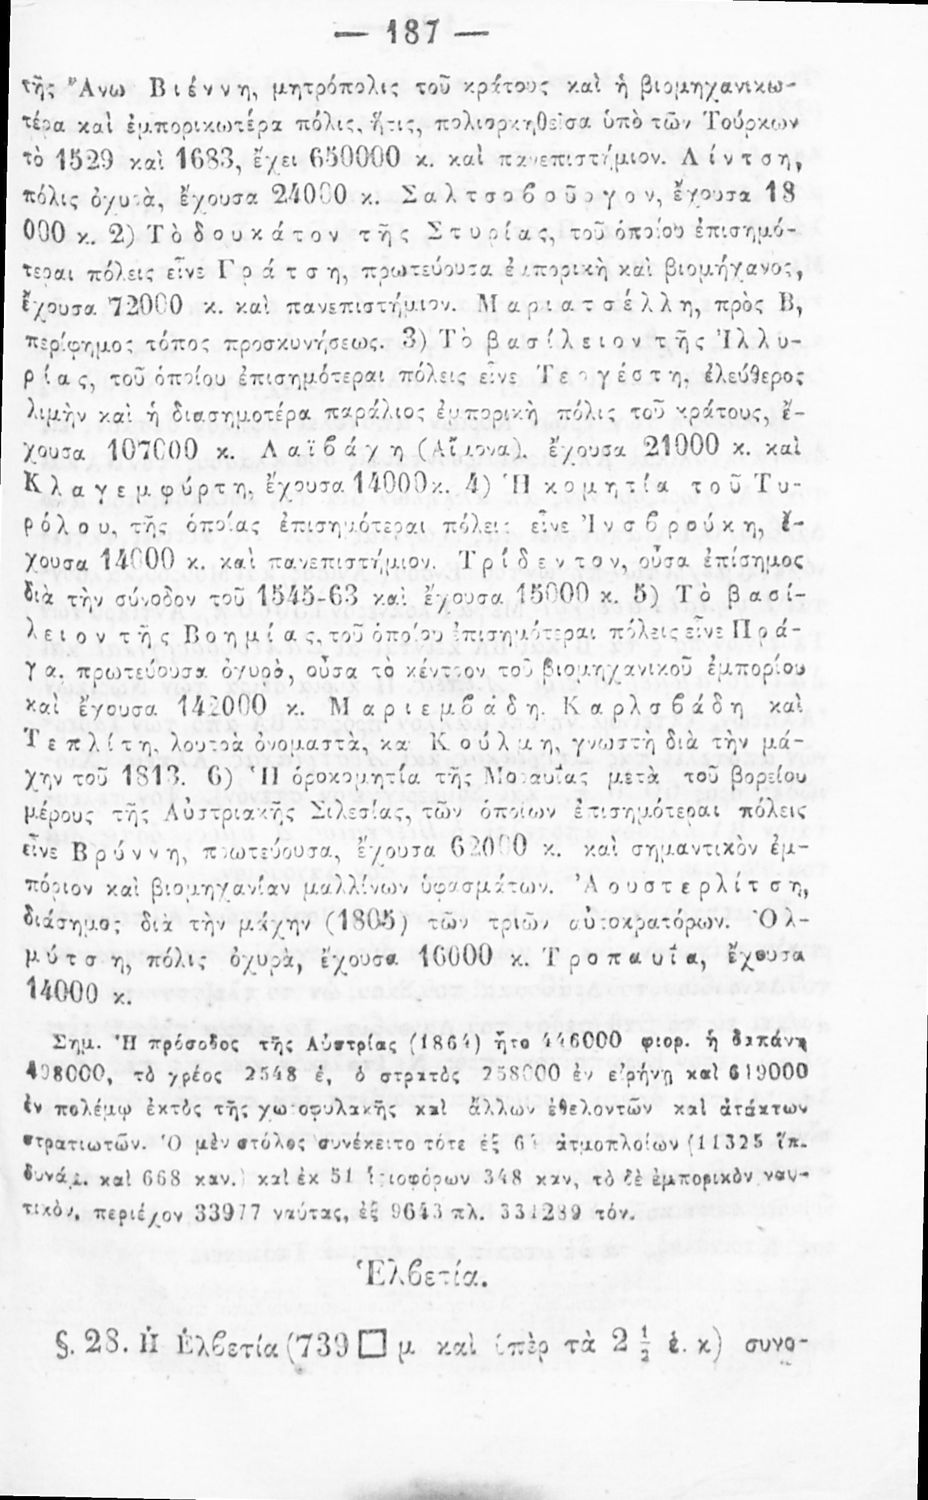 — 187 —
τῆς Ἄνω Βιέννη, μητρόπολις τοῦ κράτους καὶ ἡ βιομηχανικω-
τέρα καὶ ἐμπορικωτέρα πόλις, ἥτις, πολιορκηθεῖσα ὑπὸ τῶν Τούρκων
τὸ 1529 καὶ 1683, ἔχει 650000 κ. καὶ πανεπιστήμιον. Λίντση,
πόλις ὀχυρὰ, ἔχουσα 24000 κ. Σαλτσοβοῦργον, ἔχουσα 18
000 κ. 2) Τὸ δουκάτον τῆς Στυρίας, τοῦ ὁποίου ἐπισημό-
τεραι πόλεις εἶνε Γράτση, πρωτεύουσα ἐμπορικὴ καὶ βιομήχανος,
ἔχουσα 72000 κ. καὶ πανεπιστήμιον. Μαριατσέλλη, πρὸς Β,
περίφημος τόπος προσκυνήσεως. 3) Τὸ βασίλειον τῆς Ἰλλυ-
ρίας, τοῦ ὁποίου ἐπισημότεραι πόλεις εἶνε Τεργέστη, ἐλεύθερος
λιμὴν καὶ ἡ διασημοτέρα παράλιος ἐμπορικὴ πόλις τοῦ κράτους, ἔ-
χουσα 107000 κ. Λαϊβάχη (Αἵμονα), ἔχουσα 21000 κ. καὶ
Κλαγεμφύρτη, ἔχουσα 14000 κ. 4) Ἡ κομητία τοῦ Τυ-
ρόλου, τῆς ὁποίας ἐπισημότεραι πόλεις εἶνε Ἰνσβρούκη, ἔ-
χουσα 14000 κ. καὶ πανεπιστήμιον. Τρίδεντον, οὖσα ἐπίσημος
διὰ τὴν σύνοδον τοῦ 1545-63 καὶ ἔχουσα 15000 κ. 5) Τὸ βασί-
λειον τῆς Βοημίας, τοῦ ὁποίου ἐπισημότεραι πόλεις εἶνε Πρά-
γα, πρωτεύουσα ὀχυρὸ, οὖσα τὸ κέντρον τοῦ βιομηχανικοῦ ἐμπορίου
καὶ ἔχουσα 142000 κ. Μαριεμβάδη, Καρλσβάδη καὶ
Τεπλίτη, λουτρὰ ὀνομαστὰ, καὶ Κούλμη, γνωστὴ διὰ τὴν μά-
χην τοῦ 1813. 6) Ἡ ὁροκομητία τῆς Μοραυίας μετὰ τοῦ βορείου
μέρους τῆς Αὐστριακῆς Σιλεσίας, τῶν ὁποίων ἐπισημότεραι πόλεις
εἶνε Βρύννη, πρωτεύουσα, ἔχουσα 62000 κ. καὶ σημαντικὸν ἐμ-
πόριον καὶ βιομηχανίαν μαλλίνων ὑφασμάτων. Ἀουστερλίτση,
διάσημος διὰ τὴν μάχην (1805) τῶν τριῶν αὐτοκρατόρων. Ὀλ-
μύτση, πόλις ὀχυρὰ, ἔχουσα 16000 κ. Τροπαυία, ἔχουσα
14000 κ.
Σημ. Ἡ πρόσοδος τῆς Αὐστρίας (1864) ἦτο 446000 φιορ. ἡ δαπάνη
498000, τὸ χρέος 2548 ἑ, ὁ στρατὸς 258000 ἐν εἰρήνῃ καὶ 619000
ἐν πολέμῳ ἐκτὸς τῆς χωροφυλακῆς καὶ ἄλλων ἐθελοντῶν καὶ ἀτάκτων
στρατιωτῶν. Ὁ μὲν στόλος συνέκειτο τότε ἐξ ἀτμοπλοίων (11325 ἵπ.
δυνάμ. καὶ 668 καν.) καὶ ἐκ 51 ἱστιοφόρων 348 καν, τὸ δὲ ἐμπορικὸν ναυ-
τικὸν, περιέχον 33977 ναύτας, ἐξ 9643 πλ. 331289 τόν.
Ἑλβετία.
§. 28. Ἡ Ἑλβετία (739 □ μ καὶ ὑπὲρ τὰ 2 ½ ἑ. κ) συνο-